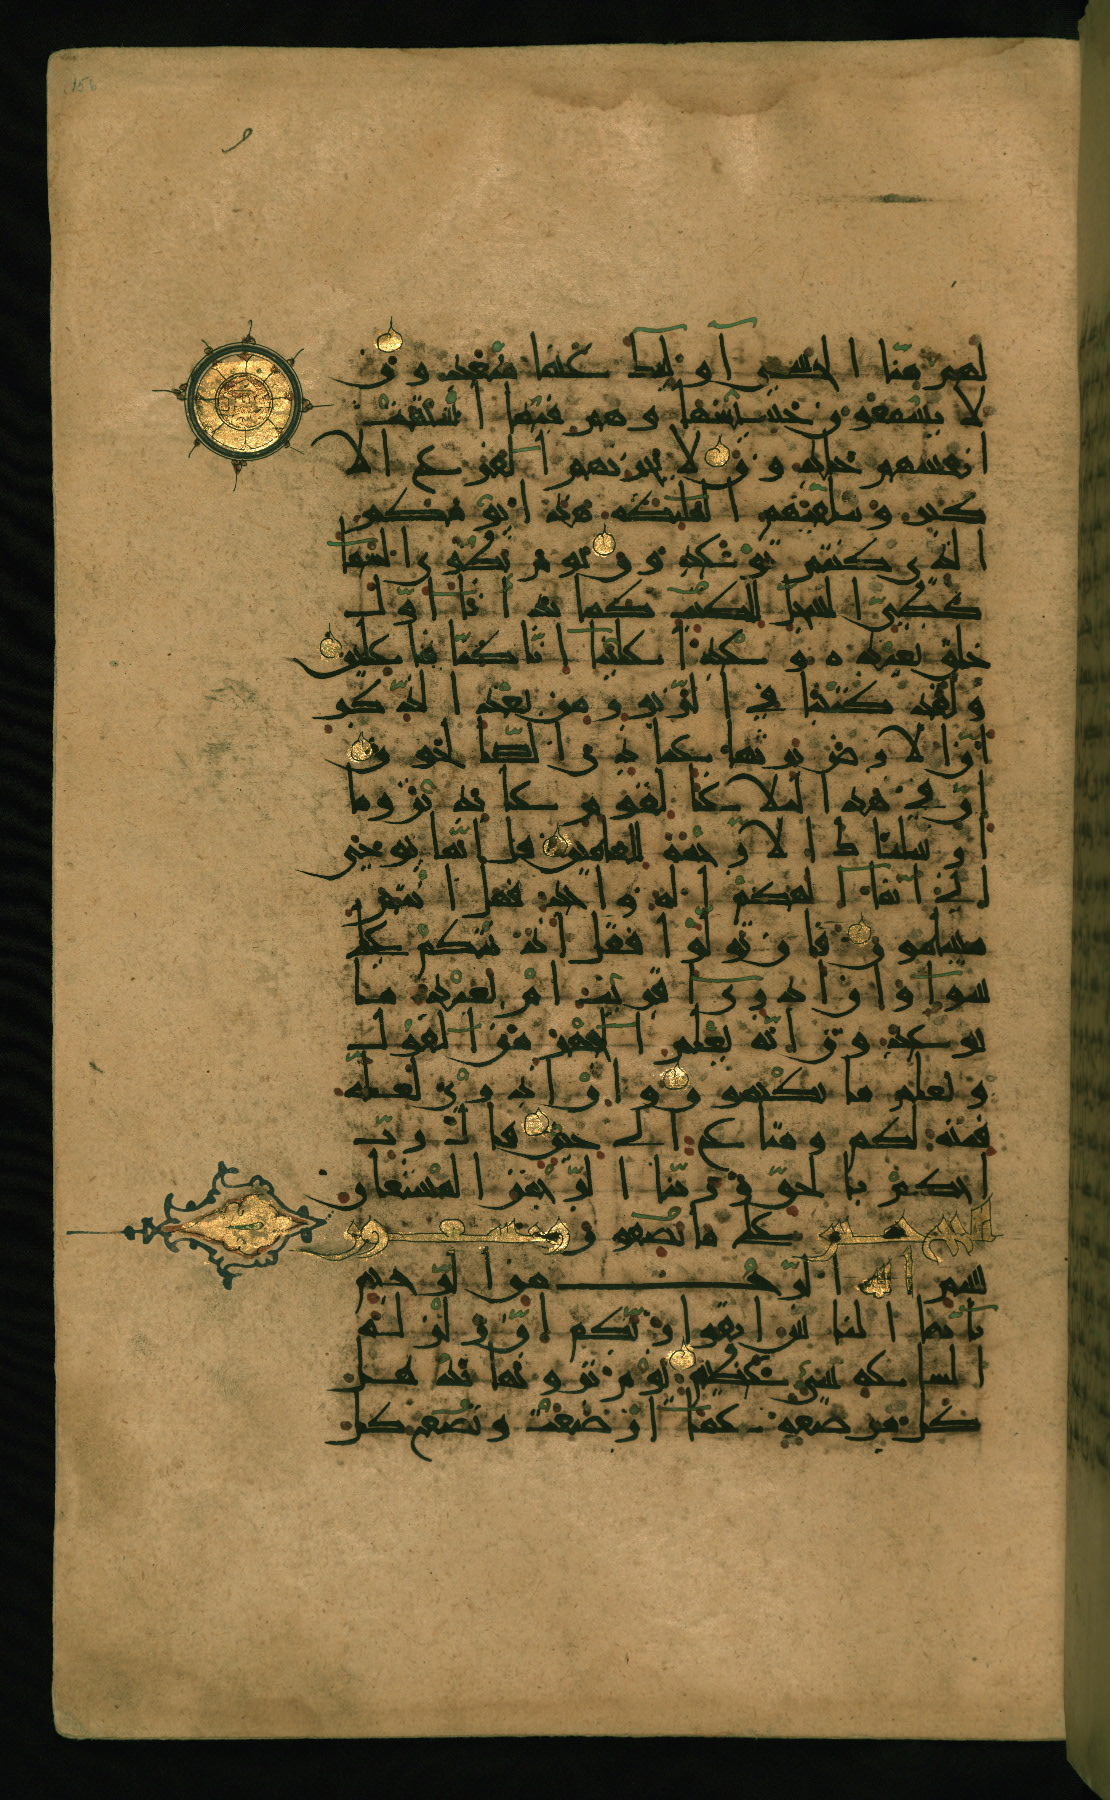 156
لهم منا الحسنى اولئك عنها مبعدون
لا يسمعون حسيسها وهم فيما اشتهت
انفسهم خلدون لا يحزنهم الفزع الا
كبر وتتلقيهم الملئكة هذا يومكم
الذي كنتم توعدون يوم نطوي السما
كطي السجل للكتب كما بدانا اول
خلق نعيده وعدا علينا انا كنا فاعلين
ولقد كتبنا في الزبور من بعد الذكر
ان الارض يرثها عبادي الصالحون
ان في هذا لبلاغا لقوم عابدين وما
ارسلناك الا رحمة للعالمين قل انما يوحى
الي انما الهكم اله واحد فهل انتم
مسلمون فان تولوا فقل اذنتكم على
سواء وان ادري اقريب ام بعيد ما
توعدون انه يعلم الجهر من القول
ويعلم ما تكتمون وان ادري لعله
فتنة لكم ومتاع الى حين قال رب
احكم بالحق وربنا الرحمن المستعان
على ما تصفون
بسم الله الرحمن الرحيم
يايها الناس اتقوا ربكم ان زلزلة
الساعة شي عظيم يوم ترونها تذهل
كل مرضعة عما ارضعت وتضع كل